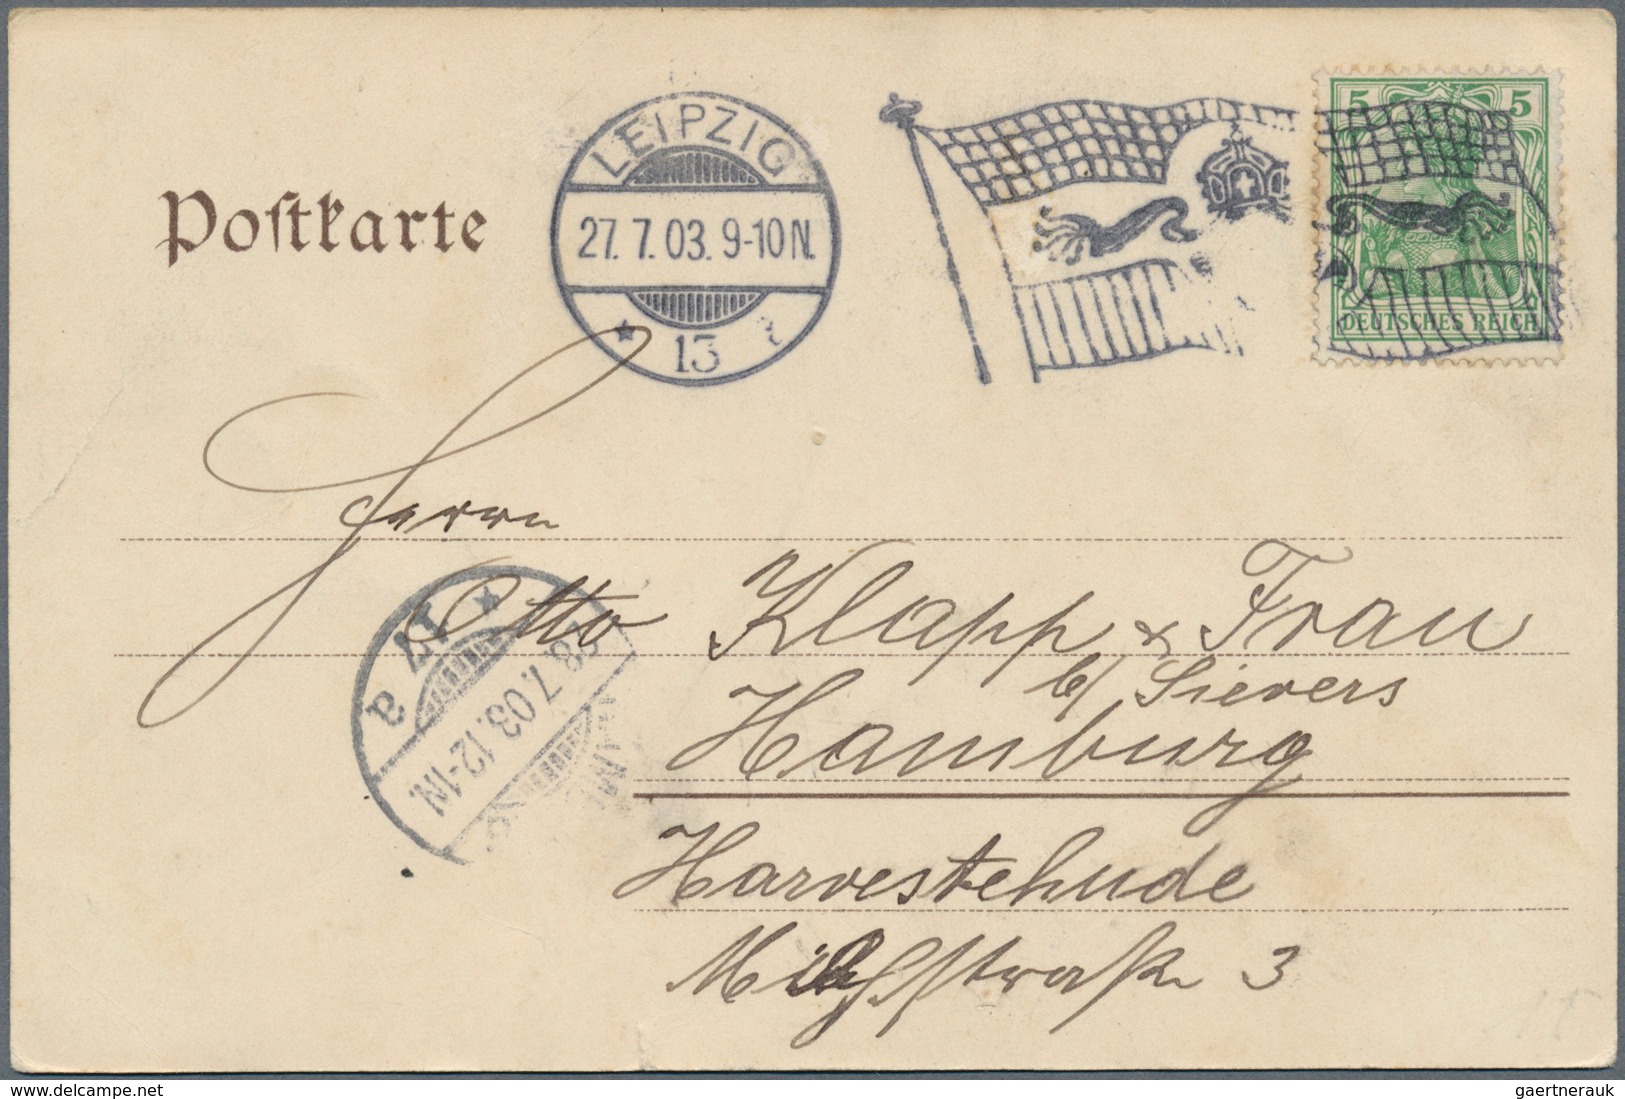 Postkarte
LEIPZIG
27. 7. 03. 9-10 N.
13
5 5
DEUTSCHES REICH
Herrn
Otto Klapp & Frau
b/ Sievers
Hamburg
Harvestehude
3
17
a
7.03. 12-1N.
delcampe.net
gaertnerauk